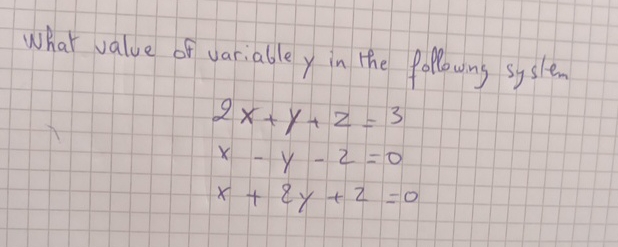 What value of variable y in the following system
2x + y + z = 3
x - y - z = 0
x + 2y + z = 0